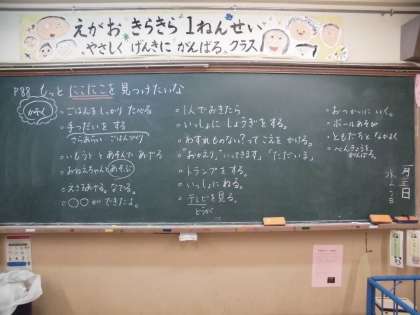 えがお きらきら 1ねんせい
やさしく げんきに がんばる。クラス
P88 もっと にこにこを 見つけたいな
かぞく
・ごはんを しっかり たべる。
・手つだいを する
さらあらい ごはんづくり
・いもうと と あそんで あげる
・おねえちゃんと あそぶ
・えさをあげる。なでる。
・〇〇ができたよ。
・1人でおきたら
・いっしょに しょうぎを する。
・わすれものない?って こえを かける。
・"おかえり" "いってきます" "ただいま"
・トランプをする。
・いっしょに ねる。
・テレビを見る。
どうが
・おつかいに いく。
・ボールあそび
・ともだちと なかよく
・べんきょうを がんばる。
月
日